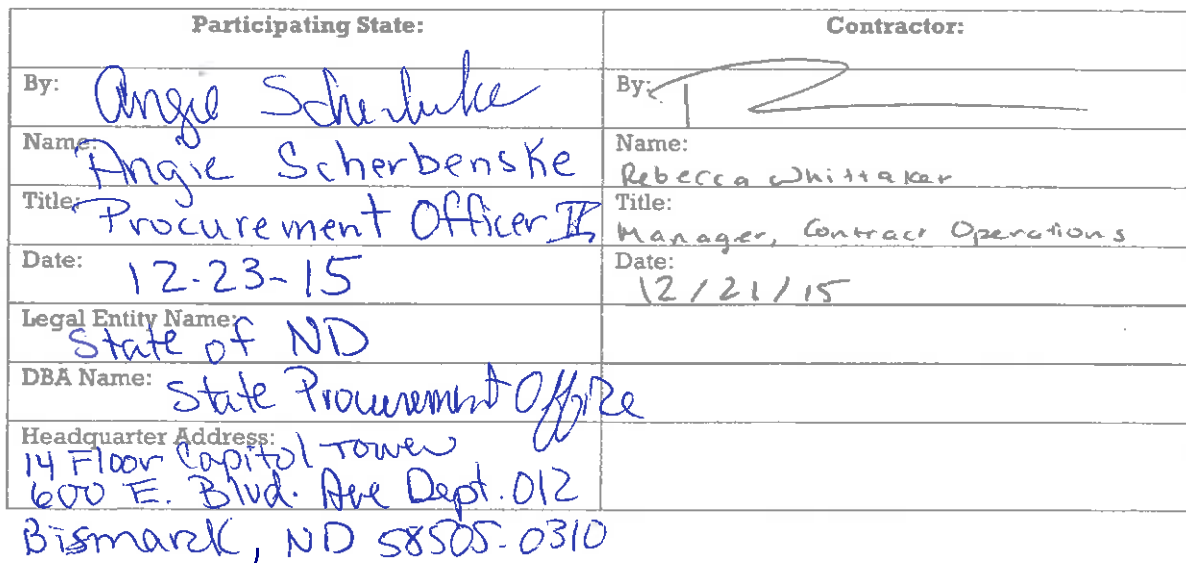 Participating State:
Contractor:
By: Angie Scherbenske
By:
Name: Angie Scherbenske
Name:
Rebecca Whittaker
Title: Procurement Officer II
Title:
Manager, Contract Operations
Date: 12-23-15
Date:
12/21/15
Legal Entity Name:
State of ND
DBA Name: State Procurement Office
Headquarter Address:
14 Floor Capitol Tower
600 E. Blvd. Ave Dept. 012
Bismarck, ND 58505-0310